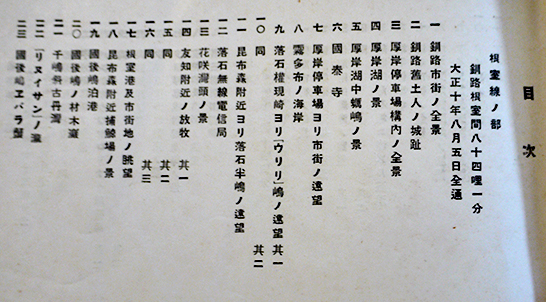 目次
根室線ノ部
釧路根室間八十四哩一分
大正十年八月五日全通
一 釧路市街ノ全景
二 釧路舊土人ノ城趾
三 厚岸停車場構内ノ全景
四 厚岸湖ノ景
五 厚岸湖中蠣嶋ノ景
六 國泰寺
七 厚岸停車場ヨリ市街ノ遠望
八 霧多布ノ海岸
九 落石權現崎ヨリ「ウリリ」嶋ノ遠望 其一
一〇 同 其二
一一 昆布森附近ヨリ落石半嶋ノ遠望
一二 落石無線電信局
一三 花咲灣頭ノ景
一四 友知附近ノ放牧 其一
一五 同 其二
一六 同 其三
一七 根室港及市街地ノ眺望
一八 昆布森附近捕鯨場ノ景
一九 國後嶋泊港
二〇 國後嶋ノ材木岩
二一 千嶋斜古丹灣
二二 「リヌイサン」ノ瀧
二三 國後嶋ヱバラ盤